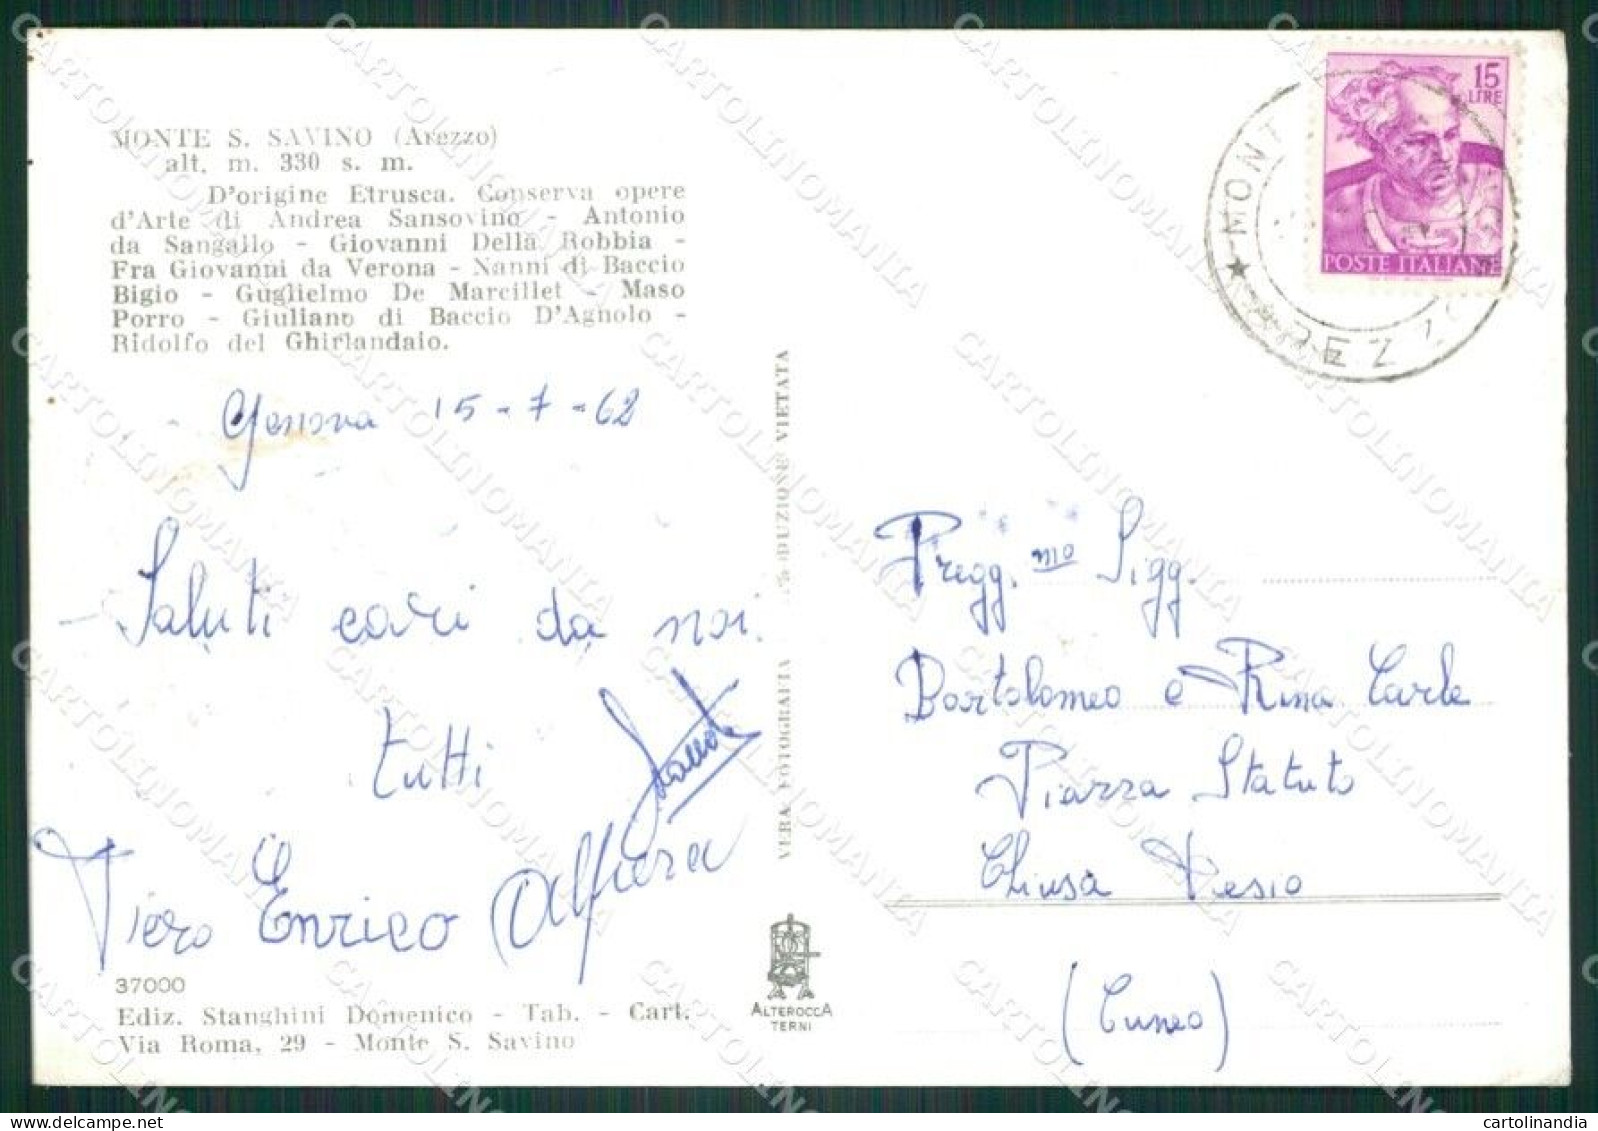 MONTE S. SAVINO (Arezzo)
alt. m. 330 s. m.
D'origine Etrusca. Conserva opere
d'Arte di Andrea Sansovino - Antonio
da Sangallo - Giovanni Della Robbia -
Fra Giovanni da Verona - Nanni di Baccio
Bigio - Guglielmo De Marcillet - Maso
Porro - Giuliano di Baccio D'Agnolo -
Ridolfo del Ghirlandaio.
Genova 15-7-62
Saluti cari da noi
tutti
Piero Enrico Alfiera
37000
Ediz. Stanghini Domenico - Tab. - Cart.
Via Roma, 29 - Monte S. Savino
VERA FOTOGRAFIA
VIETATA
ALTEROCCA
TERNI
15
LIRE
POSTE ITALIANE
MONT
AREZZO
Pregg.mo Sigg.
Bartolomeo e Rina Carle
Piazza Statuto
Chiusa Pesio
(Cuneo)
CARTOLINOMANIA
cartolinandia